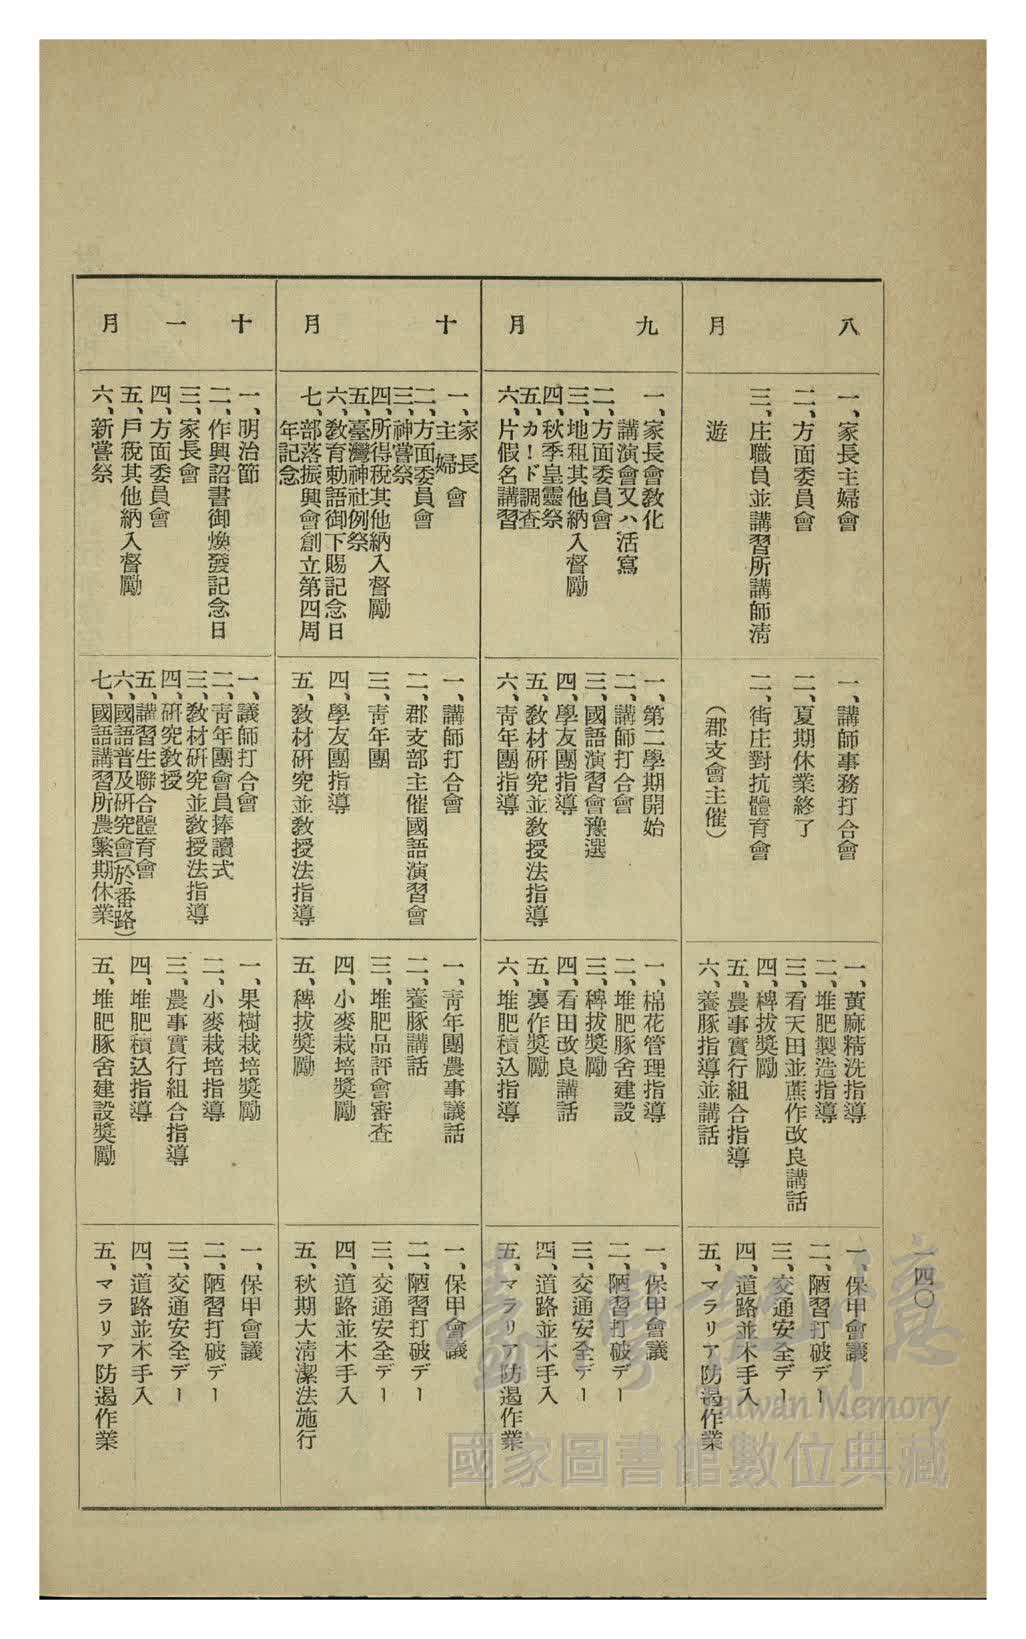 一四〇
八月
一、家長主婦會
二、方面委員會
三、庄職員並講習所講師淸
遊
一、講師事務打合會
二、夏期休業終了
二、街庄對抗體育會
(郡支會主催)
一、黄麻精洗指導
二、堆肥製造指導
三、看天田並蔗作改良講話
四、稗拔奬勵
五、農事實行組合指導
六、養豚指導並講話
一、保甲會議
二、陋習打破デー
三、交通安全デー
四、道路並木手入
五、マラリア防遏作業
九月
一、家長會敎化
講演會又ハ活寫
二、方面委員會
三、地租其他納入督勵
四、秋季皇靈祭
五、カード調査
六、片假名講習
一、第二學期開始
二、講師打合會
三、國語演習會豫選
四、學友團指導
五、敎材硏究並敎授法指導
六、靑年團指導
一、棉花管理指導
二、堆肥豚舍建設
三、稗拔奬勵
四、看田改良講話
五、裏作奬勵
六、堆肥積込指導
一、保甲會議
二、陋習打破デー
三、交通安全デー
四、道路並木手入
五、マラリア防遏作業
十月
一、家長主婦會
二、方面委員會
三、神嘗祭
四、所得稅其他納入督勵
五、臺灣神社例祭
六、敎育勅語御下賜記念日
七、部落振興會創立第四周
年記念
一、講師打合會
二、郡支部主催國語演習會
三、靑年團
四、學友團指導
五、敎材硏究並敎授法指導
一、靑年團農事議話
二、養豚講話
三、堆肥品評會審査
四、小麥栽培奬勵
五、稗拔奬勵
一、保甲會議
二、陋習打破デー
三、交通安全デー
四、道路並木手入
五、秋期大淸潔法施行
十一月
一、明治節
二、作興詔書御煥發記念日
三、家長會
四、方面委員會
五、戶稅其他納入督勵
六、新嘗祭
一、議師打合會
二、靑年團會員捧讀式
三、敎材硏究並敎授法指導
四、硏究敎授
五、講習生聯合體育會
六、國語普及硏究會(於番路)
七、國語講習所農繁期休業
一、果樹栽培奬勵
二、小麥栽培指導
三、農事實行組合指導
四、堆肥積込指導
五、堆肥豚舍建設奬勵
一、保甲會議
二、陋習打破デー
三、交通安全デー
四、道路並木手入
五、マラリア防遏作業
臺灣記憶
Taiwan Memory
國家圖書館數位典藏